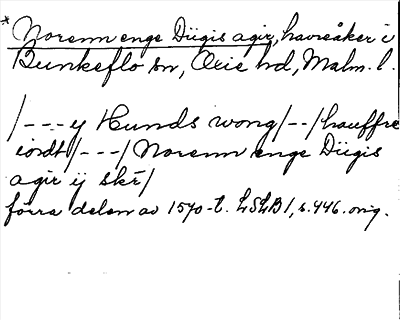 * Norenn enge Diigis agir, havreåker i
Bunkeflo sn, Oxie hd, Malm. l.
/---y Hunds wong/--/hauffre
iordt/---/Norenn enge Diigis
agir ij skr/
förra delen av 1570-t. LSLB 1, s. 446. orig.